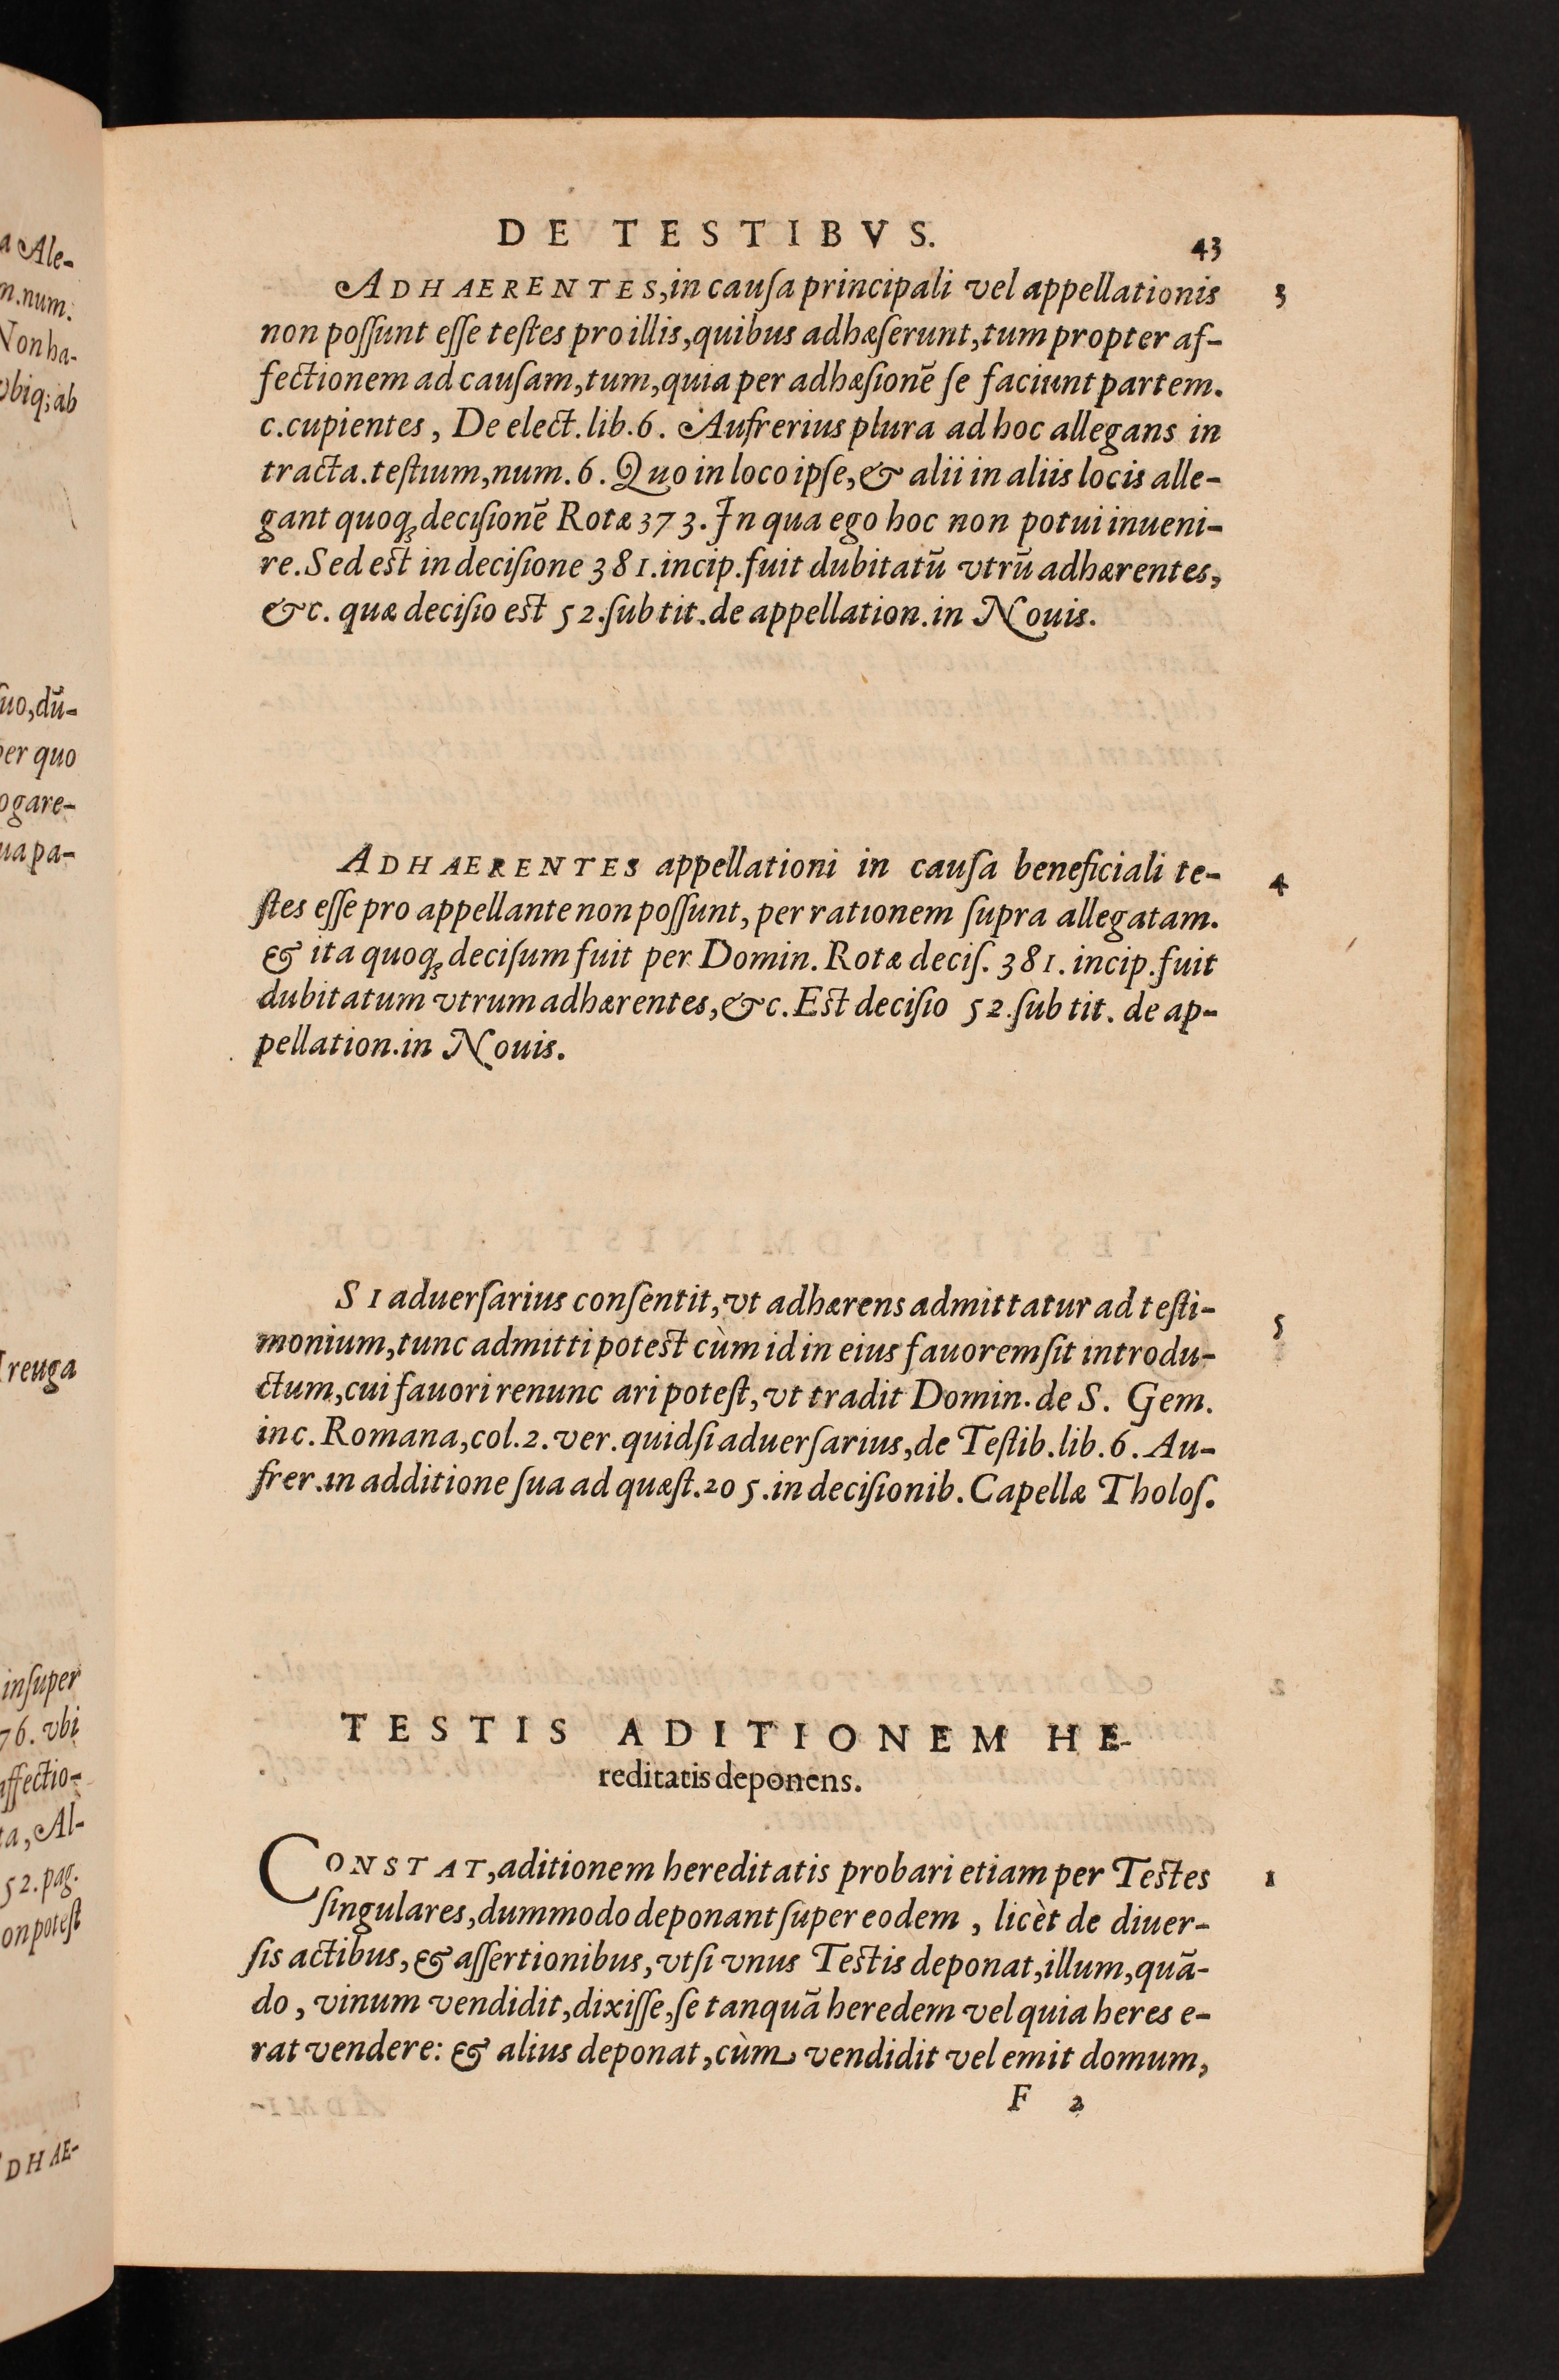 DE TESTIBVS.
43
ADHAERENTES, in cauſa principali vel appellationis
3
non poſſunt eſſe teſtes pro illis, quibus adhæſerunt, tum propter af-
fectionem ad cauſam, tum, quia per adhæſionē ſe faciunt partem.
c. cupientes, De elect. lib. 6. Aufrerius plura ad hoc allegans in
tracta. teſtium, num. 6. Quo in loco ipſe, & alii in aliis locis alle-
gant quoq; deciſionē Rotæ 373. In qua ego hoc non potui inueni-
re. Sed est in deciſione 381. incip. fuit dubitatū vtrū adhærentes,
&c. quæ deciſio est 52. ſub tit. de appellation. in Nouis.
ADHAERENTES appellationi in cauſa beneficiali te-
4
ſtes eſſe pro appellante non poſſunt, per rationem ſupra allegatam.
& ita quoq; deciſum fuit per Domin. Rotæ deciſ. 381. incip. fuit
dubitatum vtrum adhærentes, &c. Est deciſio 52. ſub tit. de ap-
pellation. in Nouis.
SI aduerſarius conſentit, vt adhærens admittatur ad teſti-
5
monium, tunc admitti potest cùm id in eius fauorem ſit introdu-
ctum, cui fauori renunc ari poteſt, vt tradit Domin. de S. Gem.
in c. Romana, col. 2. ver. quid ſi aduerſarius, de Teſtib. lib. 6. Au-
frer. in additione ſua ad quæſt. 205. in deciſionib. Capellæ Tholoſ.
TESTIS ADITIONEM HE-
reditatis deponens.
CONSTAT, aditionem hereditatis probari etiam per Testes
1
ſingulares, dummodo deponant ſuper eodem, licèt de diuer-
ſis actibus, & aſſertionibus, vt ſi vnus Testis deponat, illum, quā-
do, vinum vendidit, dixiſſe, ſe tanquā heredem vel quia heres e-
rat vendere: & alius deponat, cùm vendidit vel emit domum,
F 2
a Ale-
m. num.
Non ha-
vbiq; ab
ſuo, dū-
per quo
ogare-
ua pa-
Treuga
inſuper
76. vbi
affectio-
ta, Al-
52. pag.
on poteſt
ADHAE-